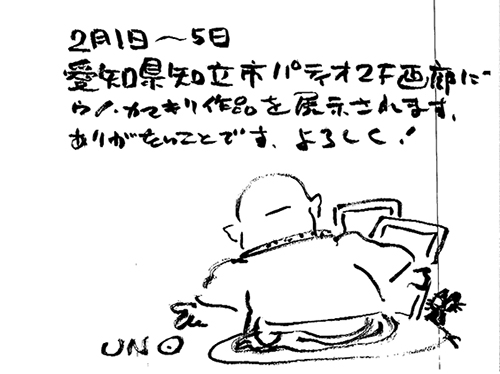 2月1日〜5日
愛知県知立市パティオ2F画廊に
ウノ・カマキリ作品を展示されます、
ありがたいことです、よろしく!
UNO